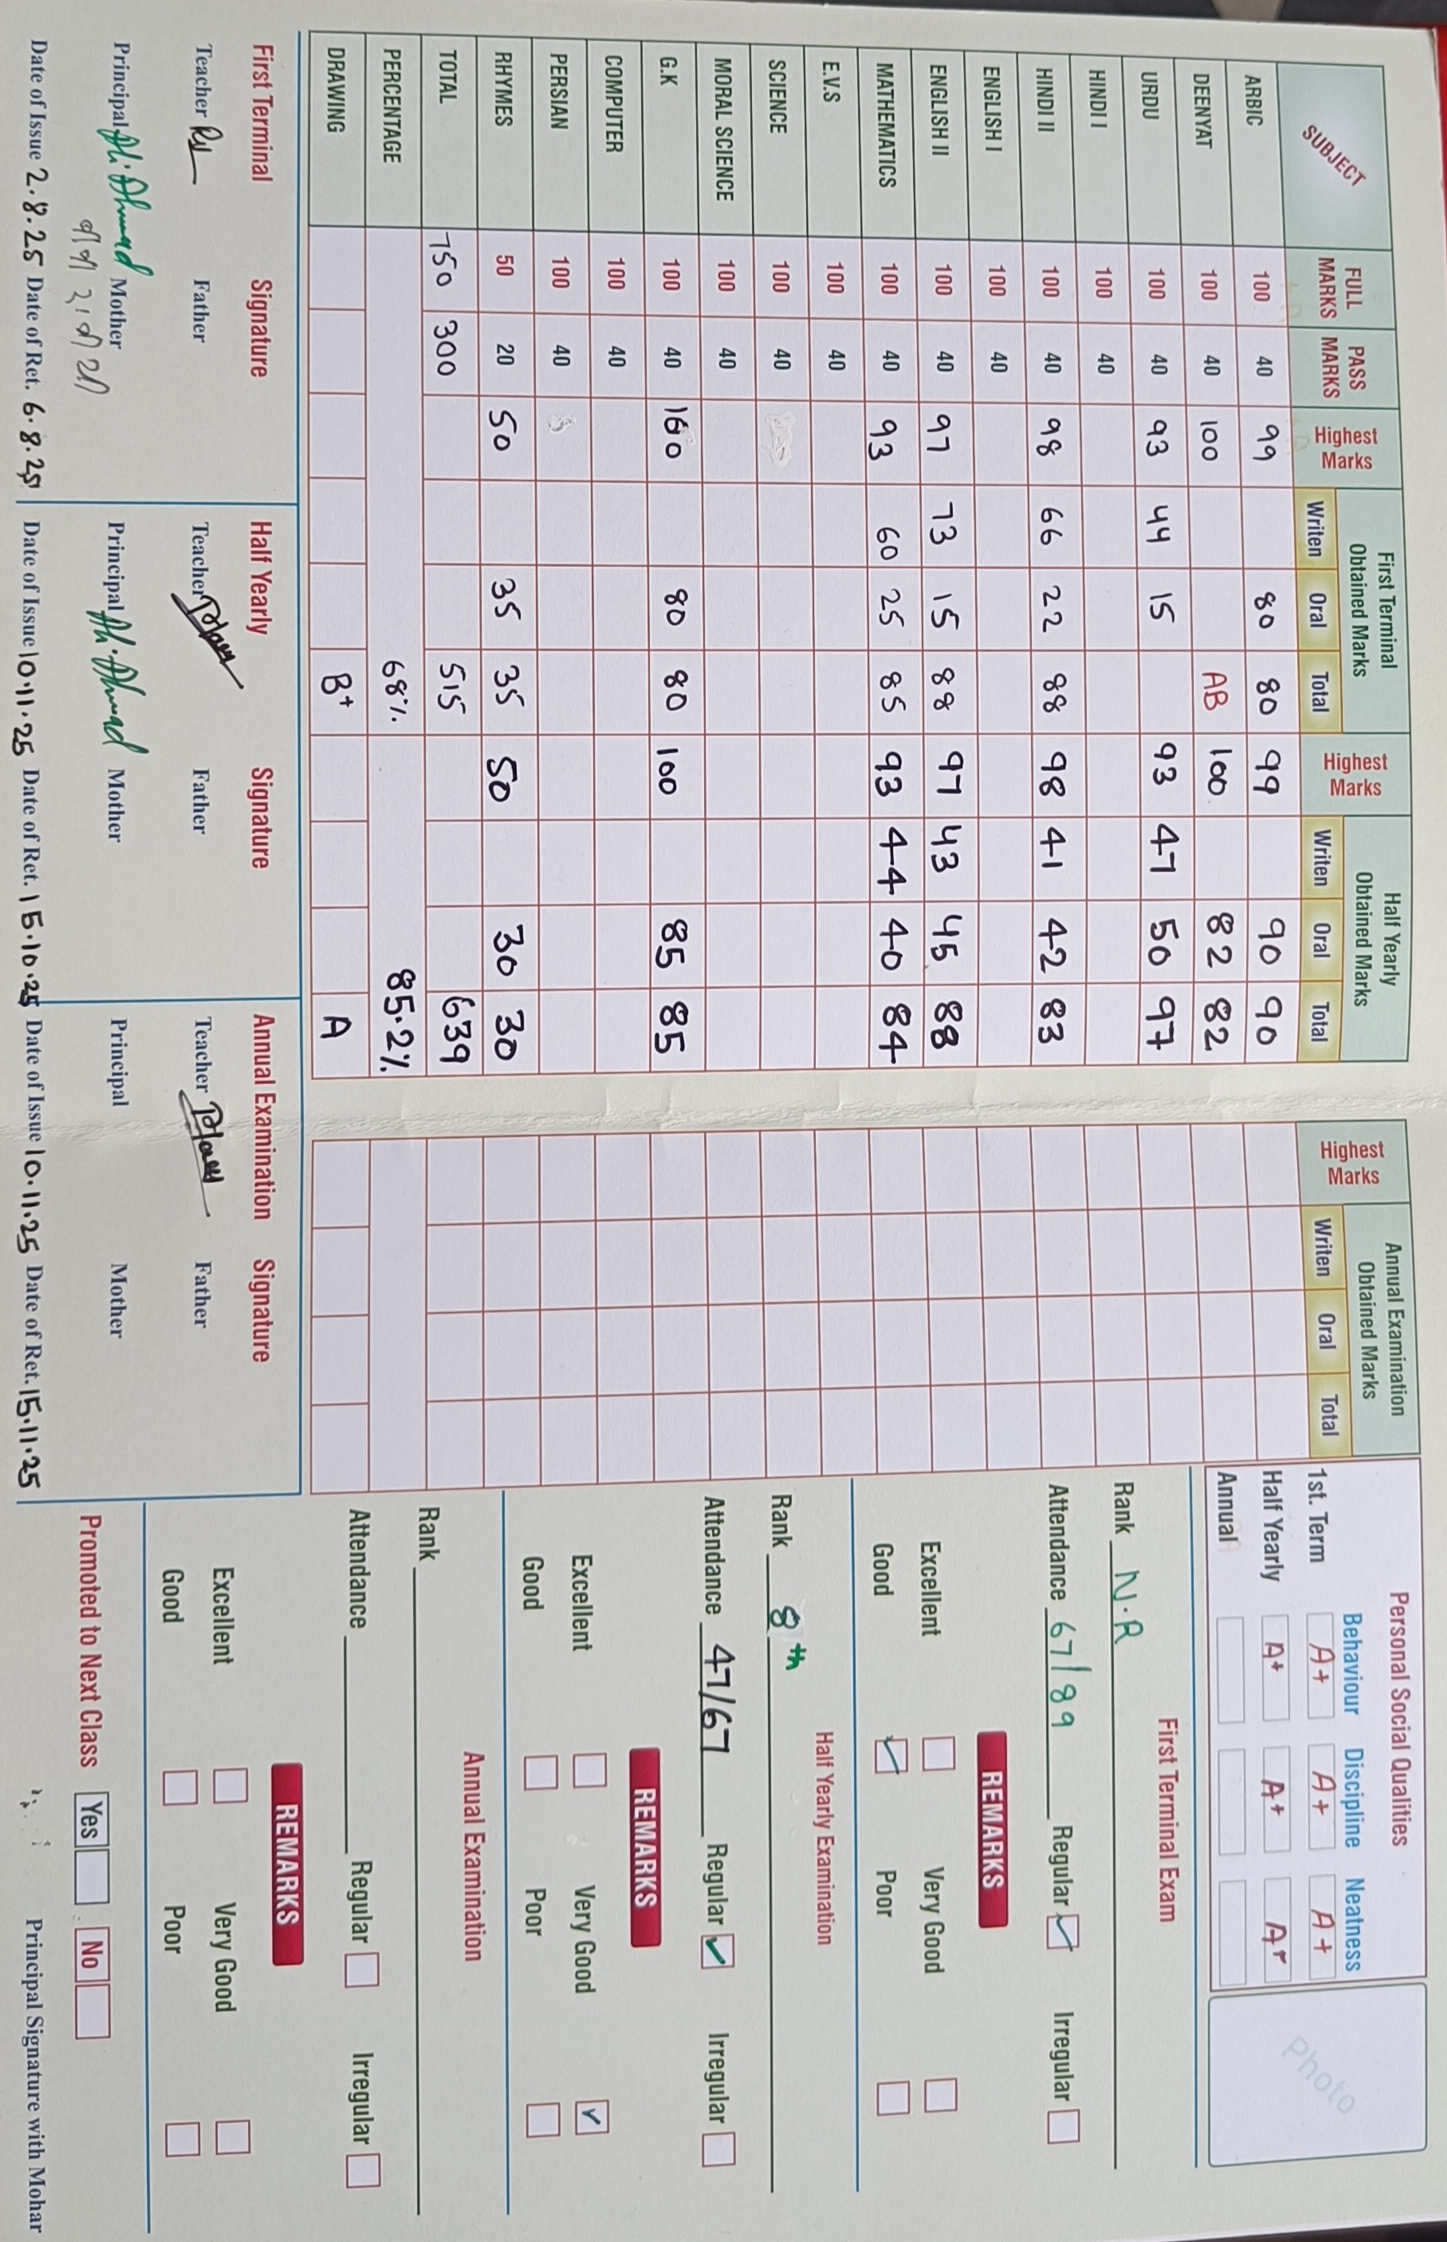 SUBJECT FULL MARKS PASS MARKS Highest Marks First Terminal Obtained Marks Writen Oral Total Highest Marks Half Yearly Obtained Marks Writen Oral Total Highest Marks Annual Examination Obtained Marks Writen Oral Total
ARBIC 100 40 99 80 80 99 90 90
DEENYAT 100 40 100 AB 100 82 82
URDU 100 40 93 44 15 93 47 50 97
HINDI I 100 40
HINDI II 100 40 98 66 22 88 98 41 42 83
ENGLISH I 100 40
ENGLISH II 100 40 97 73 15 88 97 43 45 88
MATHEMATICS 100 40 93 60 25 85 93 44 40 84
E.V.S 100 40
SCIENCE 100 40
MORAL SCIENCE 100 40
G.K 100 40 100 80 80 100 85 85
COMPUTER 100 40
PERSIAN 100 40
RHYMES 50 20 50 35 35 50 30 30
TOTAL 750 300 515 639
PERCENTAGE 68% 85.2%
DRAWING B+ A
First Terminal Signature
Teacher Father
Principal Ah. Ahmad Mother
Date of Issue 2.8.25 Date of Ret. 6.8.25
Half Yearly Signature
Teacher Father
Principal Ah. Ahmad Mother
Date of Issue 10.11.25 Date of Ret. 15.10.25
Annual Examination Signature
Teacher Father
Principal Mother
Date of Issue 10.11.25 Date of Ret. 15.11.25
Personal Social Qualities
Behaviour Discipline Neatness
1st. Term A+ A+ A+
Half Yearly A+ A+ A+
Annual
Photo
First Terminal Exam
Rank N.R
Attendance 67/89 Regular Irregular
REMARKS
Excellent Very Good
Good Poor
Half Yearly Examination
Rank 8th
Attendance 47/67 Regular Irregular
REMARKS
Excellent Very Good
Good Poor
Annual Examination
Rank
Attendance Regular Irregular
REMARKS
Excellent Very Good
Good Poor
Promoted to Next Class Yes No
Principal Signature with Mohar